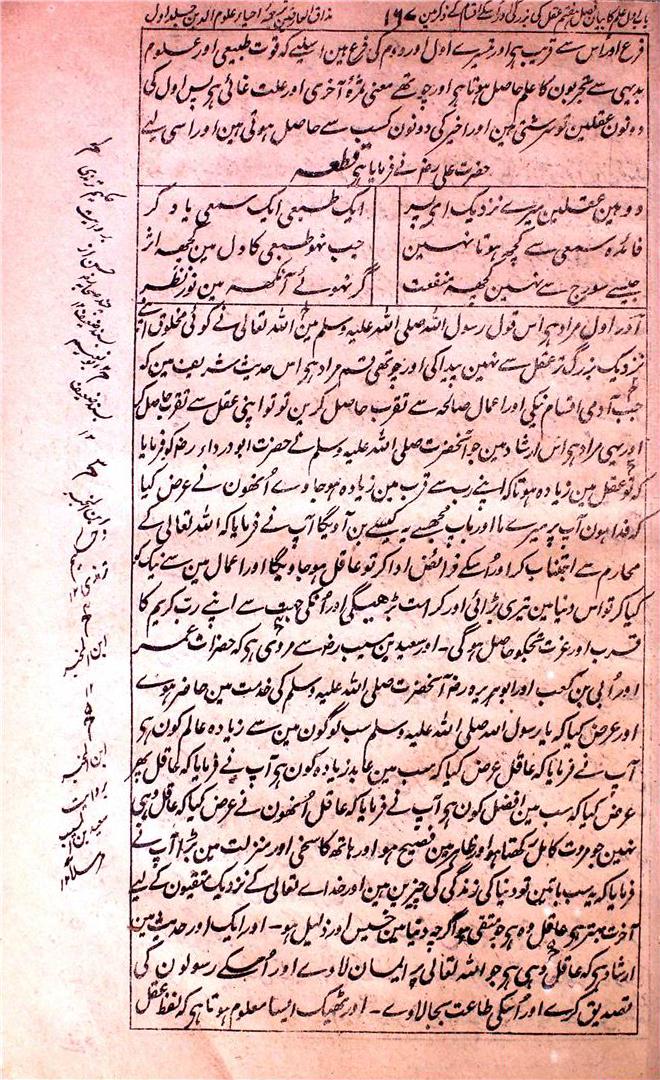 باب اول علم کا بیان فصل ہفتم عقل کی بزرگی اور اسکے اقسام کے ذکر مین ۱۶۷ مذاق العارفین ترجمہ احیاء علوم الدین جلد اول
فرع اور اس سے قریب ہے اور تیسرے اول اور دوم کی فرع ہین اسلیے کہ قوت طبیعی اور علوم
بدیہی سے تجربون کا علم حاصل ہوتا ہے اور چوتھے معنی ثمرۂ آخری اور علت غائی ہے پس اول کی
دونون عقلین تو سرشتی ہین اور اخیر کی دونون کسب سے حاصل ہوتی ہین اور اسی لیے
حضرت علی رض نے فرمایا ہے قطعہ
دو ہین عقلین میرے نزدیک اے پسر ایک طبیعی ایک سمعی یاد کر
فائدہ سمعی سے کچھ ہوتا نہین جب نہو طبیعی کا دل مین کچھ اثر
جیسے سورج سے نہین کچھ منفعت گر نہووے آنکھ مین نور نظر
اور اول مراد ہے اس قول رسول اللہ صلی اللہ علیہ وسلم مین اللہ تعالی نے کوئی مخلوق اپنے
نزدیک بزرگ تر عقل سے نہین پیدا کی اور چوتھی قسم مراد ہے اس حدیث شریف مین کہ
جب آدمی اقسام نیکی اور اعمال صالحہ سے تقرب حاصل کرین تو تو اپنی عقل سے تقرب حاصل کر
اور یہی مراد ہے اس ارشاد مین جو آنحضرت صلی اللہ علیہ وسلم نے حضرت ابو درداء رض کو فرمایا
کہ تو عقل مین زیادہ ہو تاکہ اپنے رب سے قرب مین زیادہ ہو جاوے اُنھون نے عرض کیا
کہ فدا ہون آپ پر میرے ما اور باپ مجھسے یہ کیسے بن آویگا آپ نے فرمایا کہ اللہ تعالی کے
محارم سے اجتناب کر اور اُسکے فرائض ادا کر تو عاقل ہو جاویگا اور اعمال مین سے نیک
کیا کر تو اس دنیا مین تیری بڑائی اور کرامت بڑھیگی اور اُنکی جہت سے اپنے رب کریم کا
قرب اور عزت تجھکو حاصل ہو گی ۔ اور سعید بن مسیب رض سے مروی ہے کہ حضرات عمر
اور اُبی بن کعب اور ابو ہریرہ رض آنحضرت صلی اللہ علیہ وسلم کی خدمت مین حاضر ہوے
اور عرض کیا کہ یا رسول اللہ صلی اللہ علیہ وسلم سب لوگون مین سے زیادہ عالم کون ہے
آپ نے فرمایا کہ عاقل عرض کیا کہ سب مین عابد زیادہ کون ہے آپ نے فرمایا کہ عاقل پھر
عرض کیا کہ سب مین افضل کون ہے آپ نے فرمایا کہ عاقل اُنھون نے عرض کیا کہ عاقل وہی
نہین جو مروت کامل رکھتا ہو اور ظاہر مین فصیح ہو اور ہاتھ کا سخی اور منزلت مین بڑا آپ نے
فرمایا کہ یہ سب باتین تو دنیا کی زندگی کی چیزین ہین اور خداے تعالی کے نزدیک متقیون کے لیے
آخرت بہتر ہے عاقل وہ ہے جو متقی ہو اگرچہ دنیا مین خسیس اور ذلیل ہو ۔ اور ایک اور حدیث مین
ارشاد ہے کہ عاقل وہی ہے جو اللہ تعالی پر ایمان لاوے اور اُسکے رسولون کی
تصدیق کرے اور اُسکی طاعت بجا لاوے ۔ اور ٹھیک ایسا معلوم ہوتا ہے کہ لفظ عقل
حکیم ترمذی
بروایت
حسن از
بسند ضعیف ۱۲
ابو نعیم
بسند ضعیف
۱۲
و ابن المحبر
ترمذی ۱۲
ابن المحبر
۱۲
ابن المحبر
بروایت
سعید بن المسیب
مرسلا ۱۲